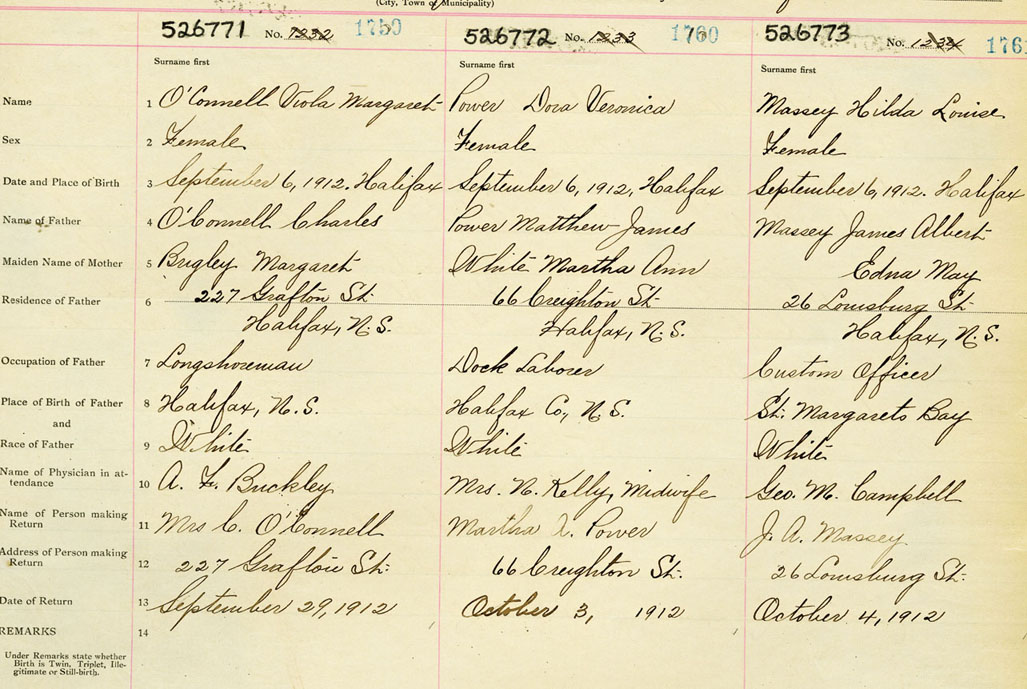 (City, Town or Municipality)
526771 No. 1232 1759 526772 No. 1233 1760 526773 No. 1234 1761
Surname first Surname first Surname first
Name 1 O'Connell Viola Margaret Power Dora Veronica Massey Hilda Louise
Sex 2 Female Female Female
Date and Place of Birth 3 September 6, 1912. Halifax September 6, 1912, Halifax September 6, 1912. Halifax
Name of Father 4 O'Connell Charles Power Matthew James Massey James Albert
Maiden Name of Mother 5 Brigley Margaret White Martha Ann Edna May
Residence of Father 6 227 Grafton St. 66 Creighton St. 26 Louisburg St.
Halifax, N.S. Halifax, N.S. Halifax, N.S.
Occupation of Father 7 Longshoreman Dock Laborer Custom Officer
Place of Birth of Father 8 Halifax, N.S. Halifax Co., N.S. St. Margarets Bay
and
Race of Father 9 White White White
Name of Physician in at-
tendance 10 A. F. Buckley Mrs. N. Kelly, Midwife Geo. M. Campbell
Name of Person making
Return 11 Mrs C. O'Connell Martha A. Power J. A. Massey
Address of Person making
Return 12 227 Grafton St. 66 Creighton St. 26 Louisburg St.
Date of Return 13 September 29, 1912 October 3, 1912 October 4, 1912
REMARKS 14
Under Remarks state whether
Birth is Twin, Triplet, Ille-
gitimate or Still-birth.